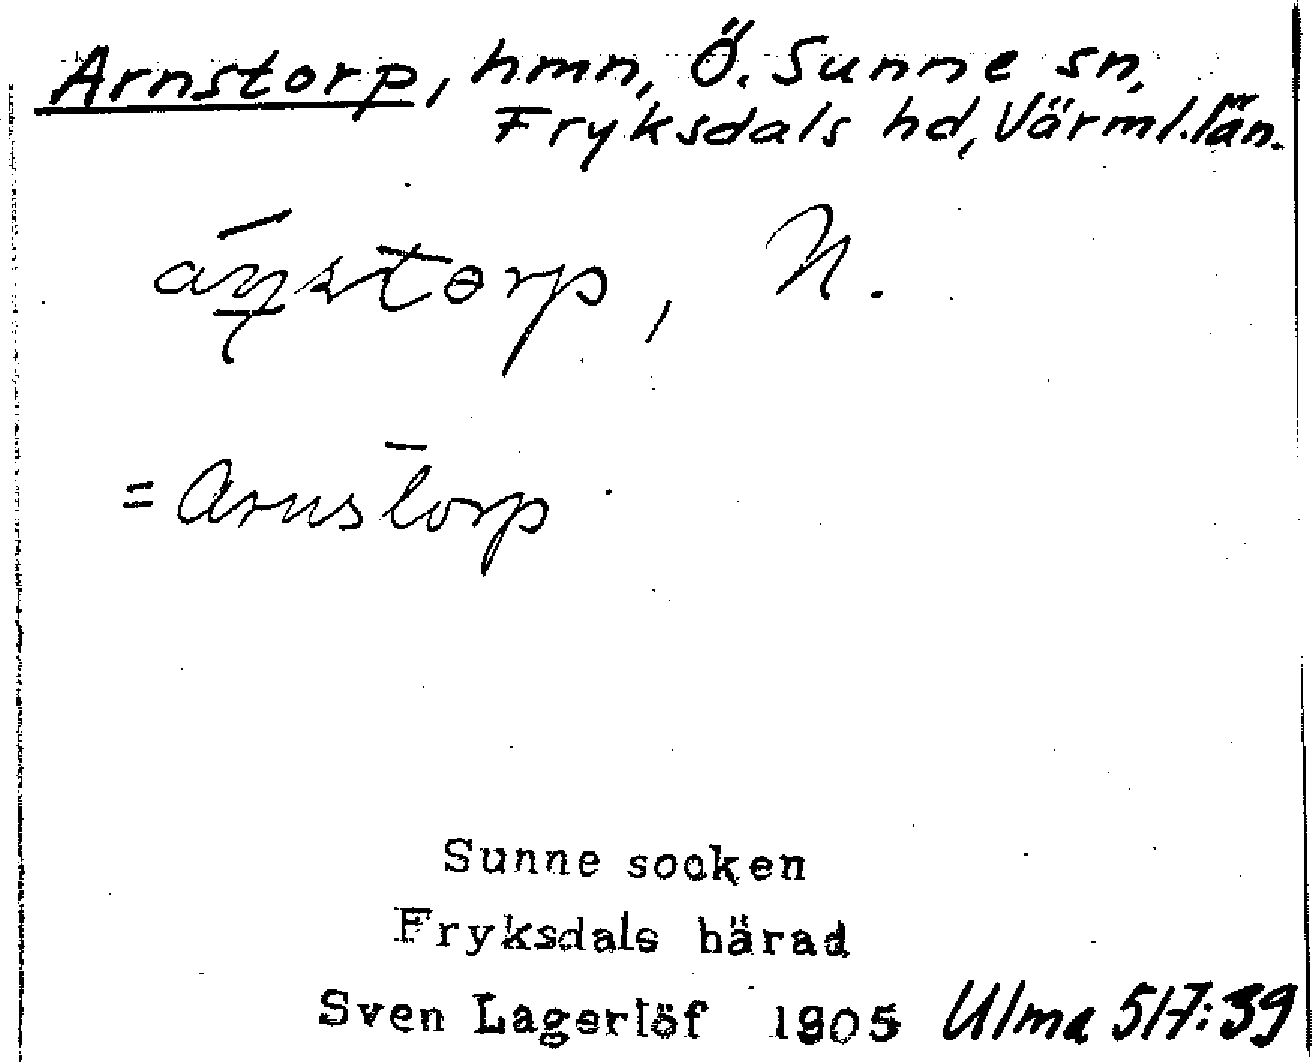 Arnstorp, hmn, Ö. Sunne sn,
Fryksdals hd, Värml. län.
N.
= Arnstorp
Sunne socken
Fryksdals härad
Sven Lagerlöf 1905 Ulma 517:39